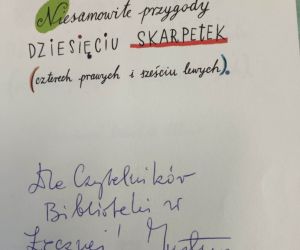 Niesamowite przygody
DZIESIĘCIU SKARPETEK
(czterech prawych i sześciu lewych).
Dla Czytelników
Biblioteki w
Łęcznej!